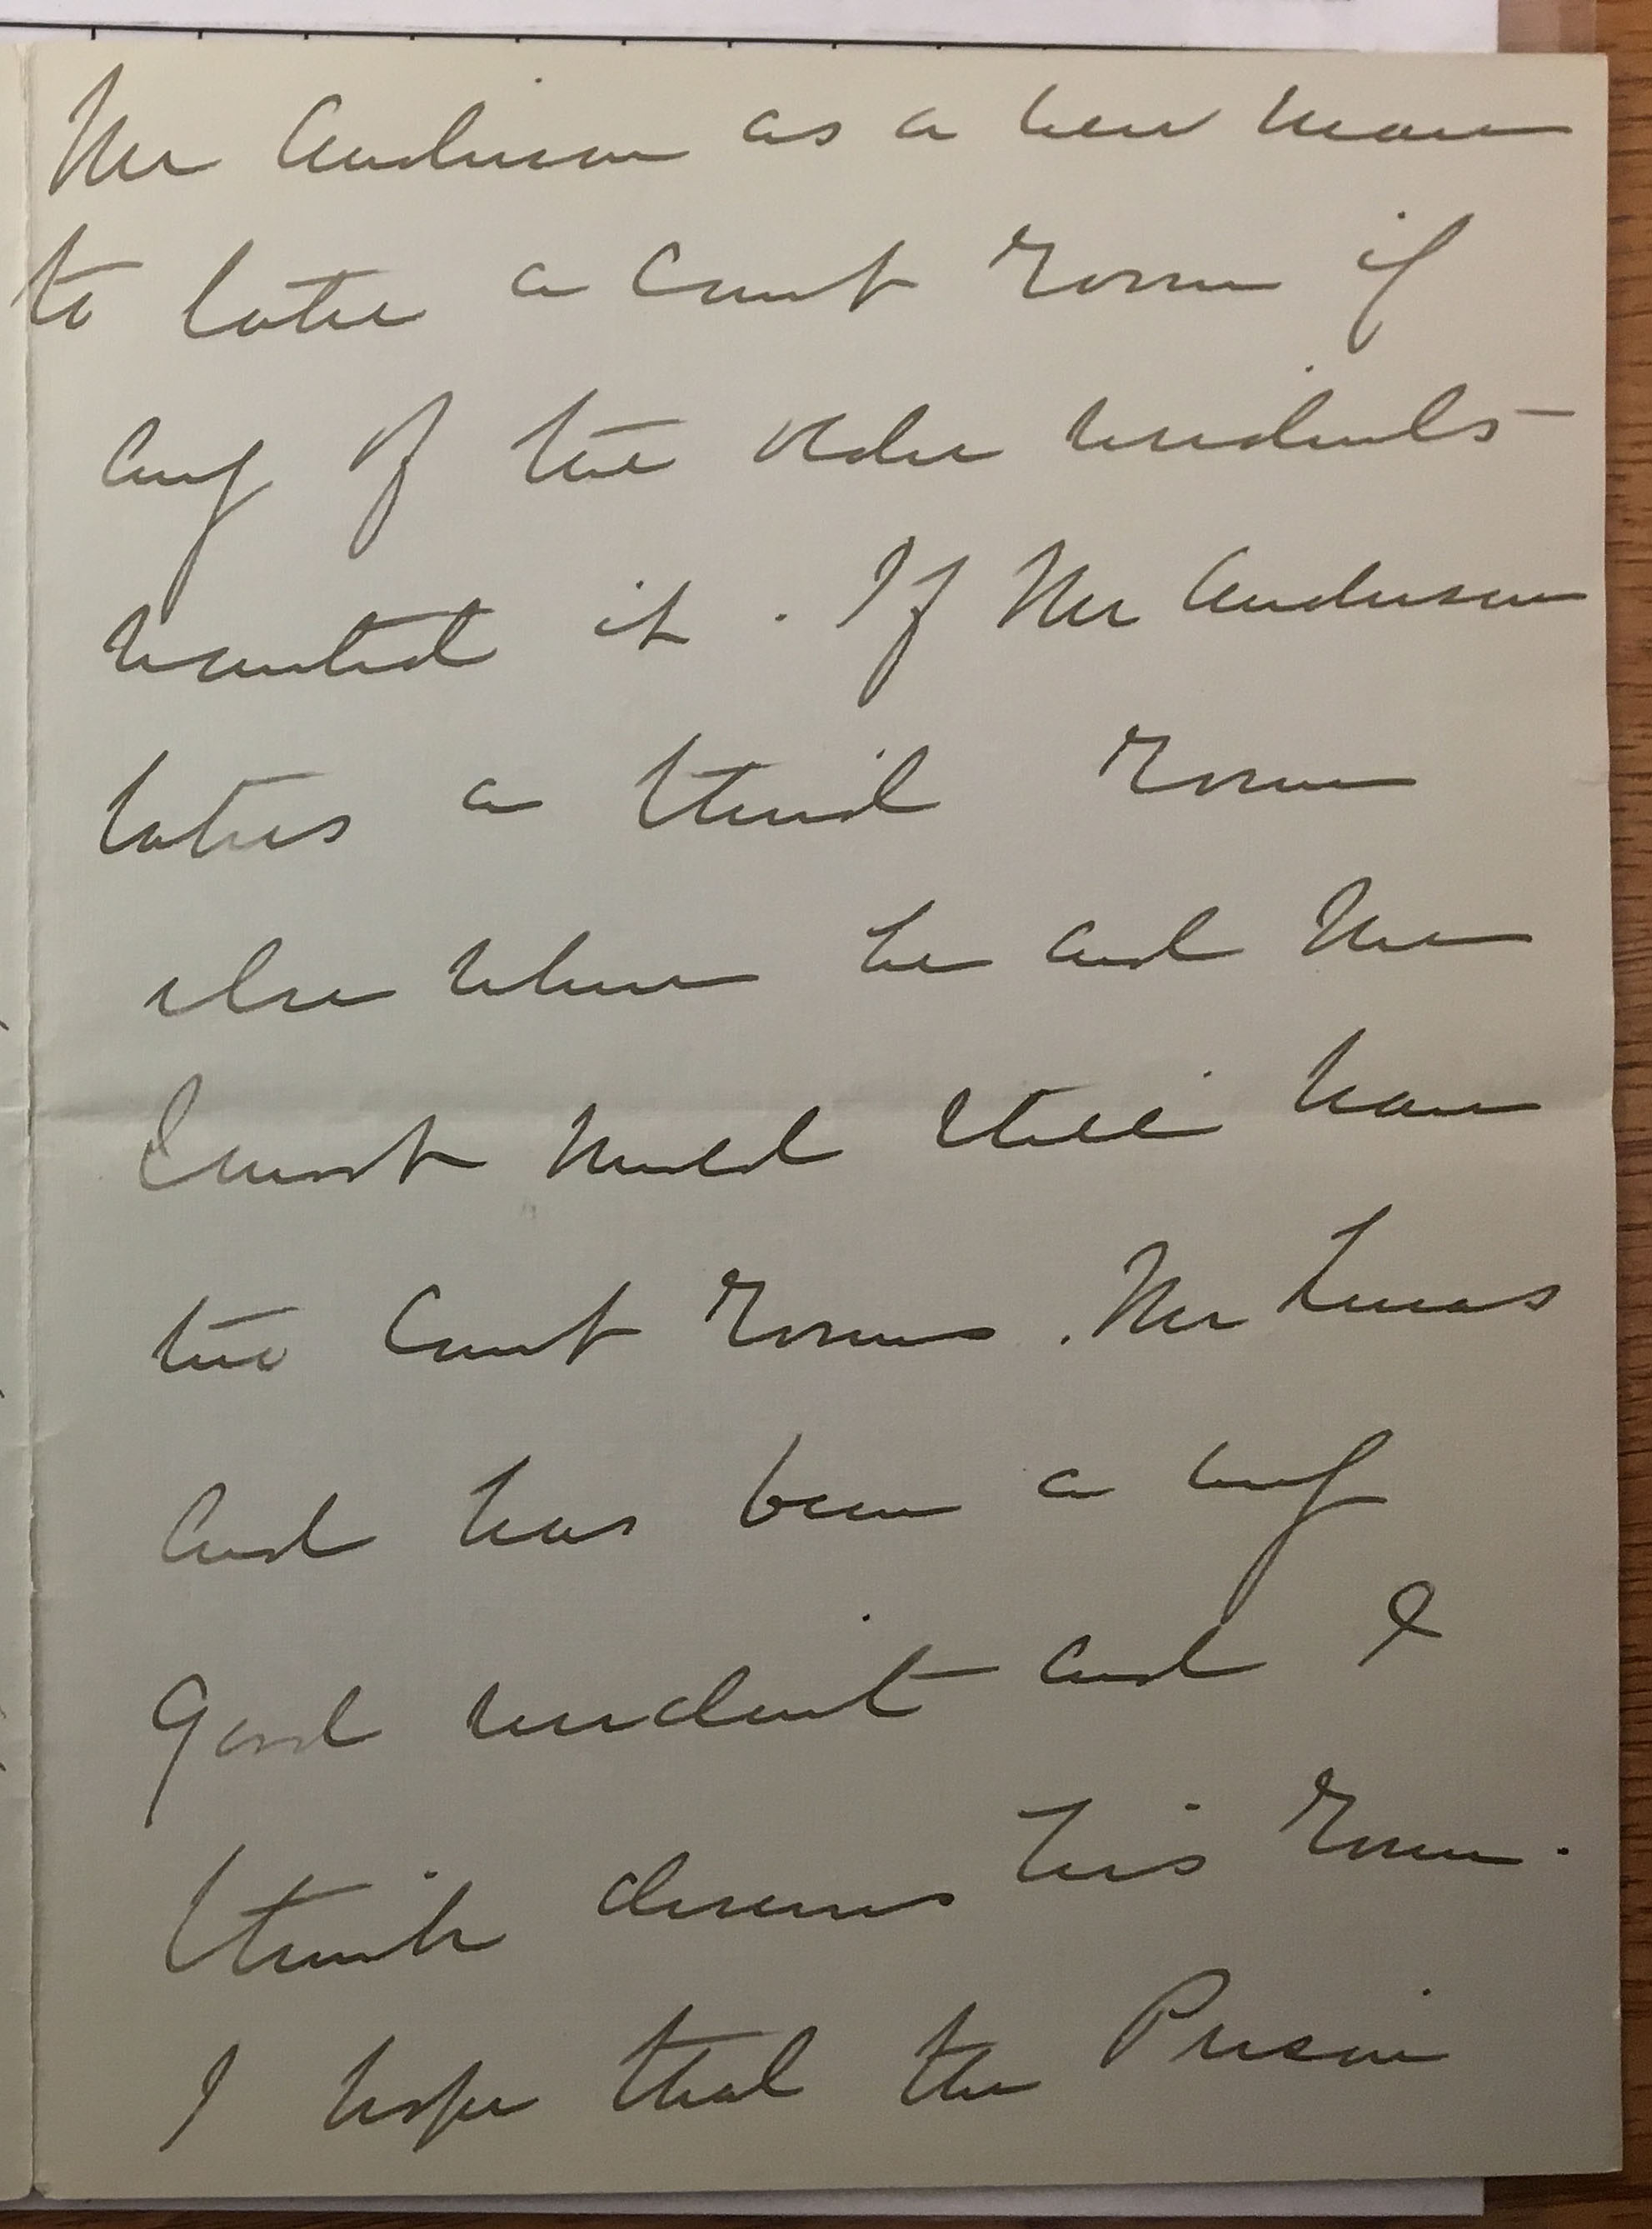 Mr Anderson as a new man
to take a Court room if
any of the older residents
wanted it. If Mr Anderson
takes a third room
else where he and Mr
would still have
two Court rooms. Mr Lucas
and has been a very
good resident and I
think deserves his room.
I hope that the Prison